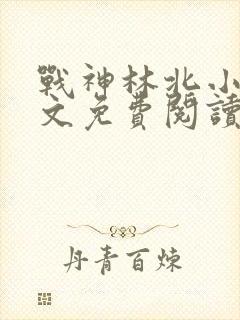 戰神林北小
文免費閱讀
丹青百煉